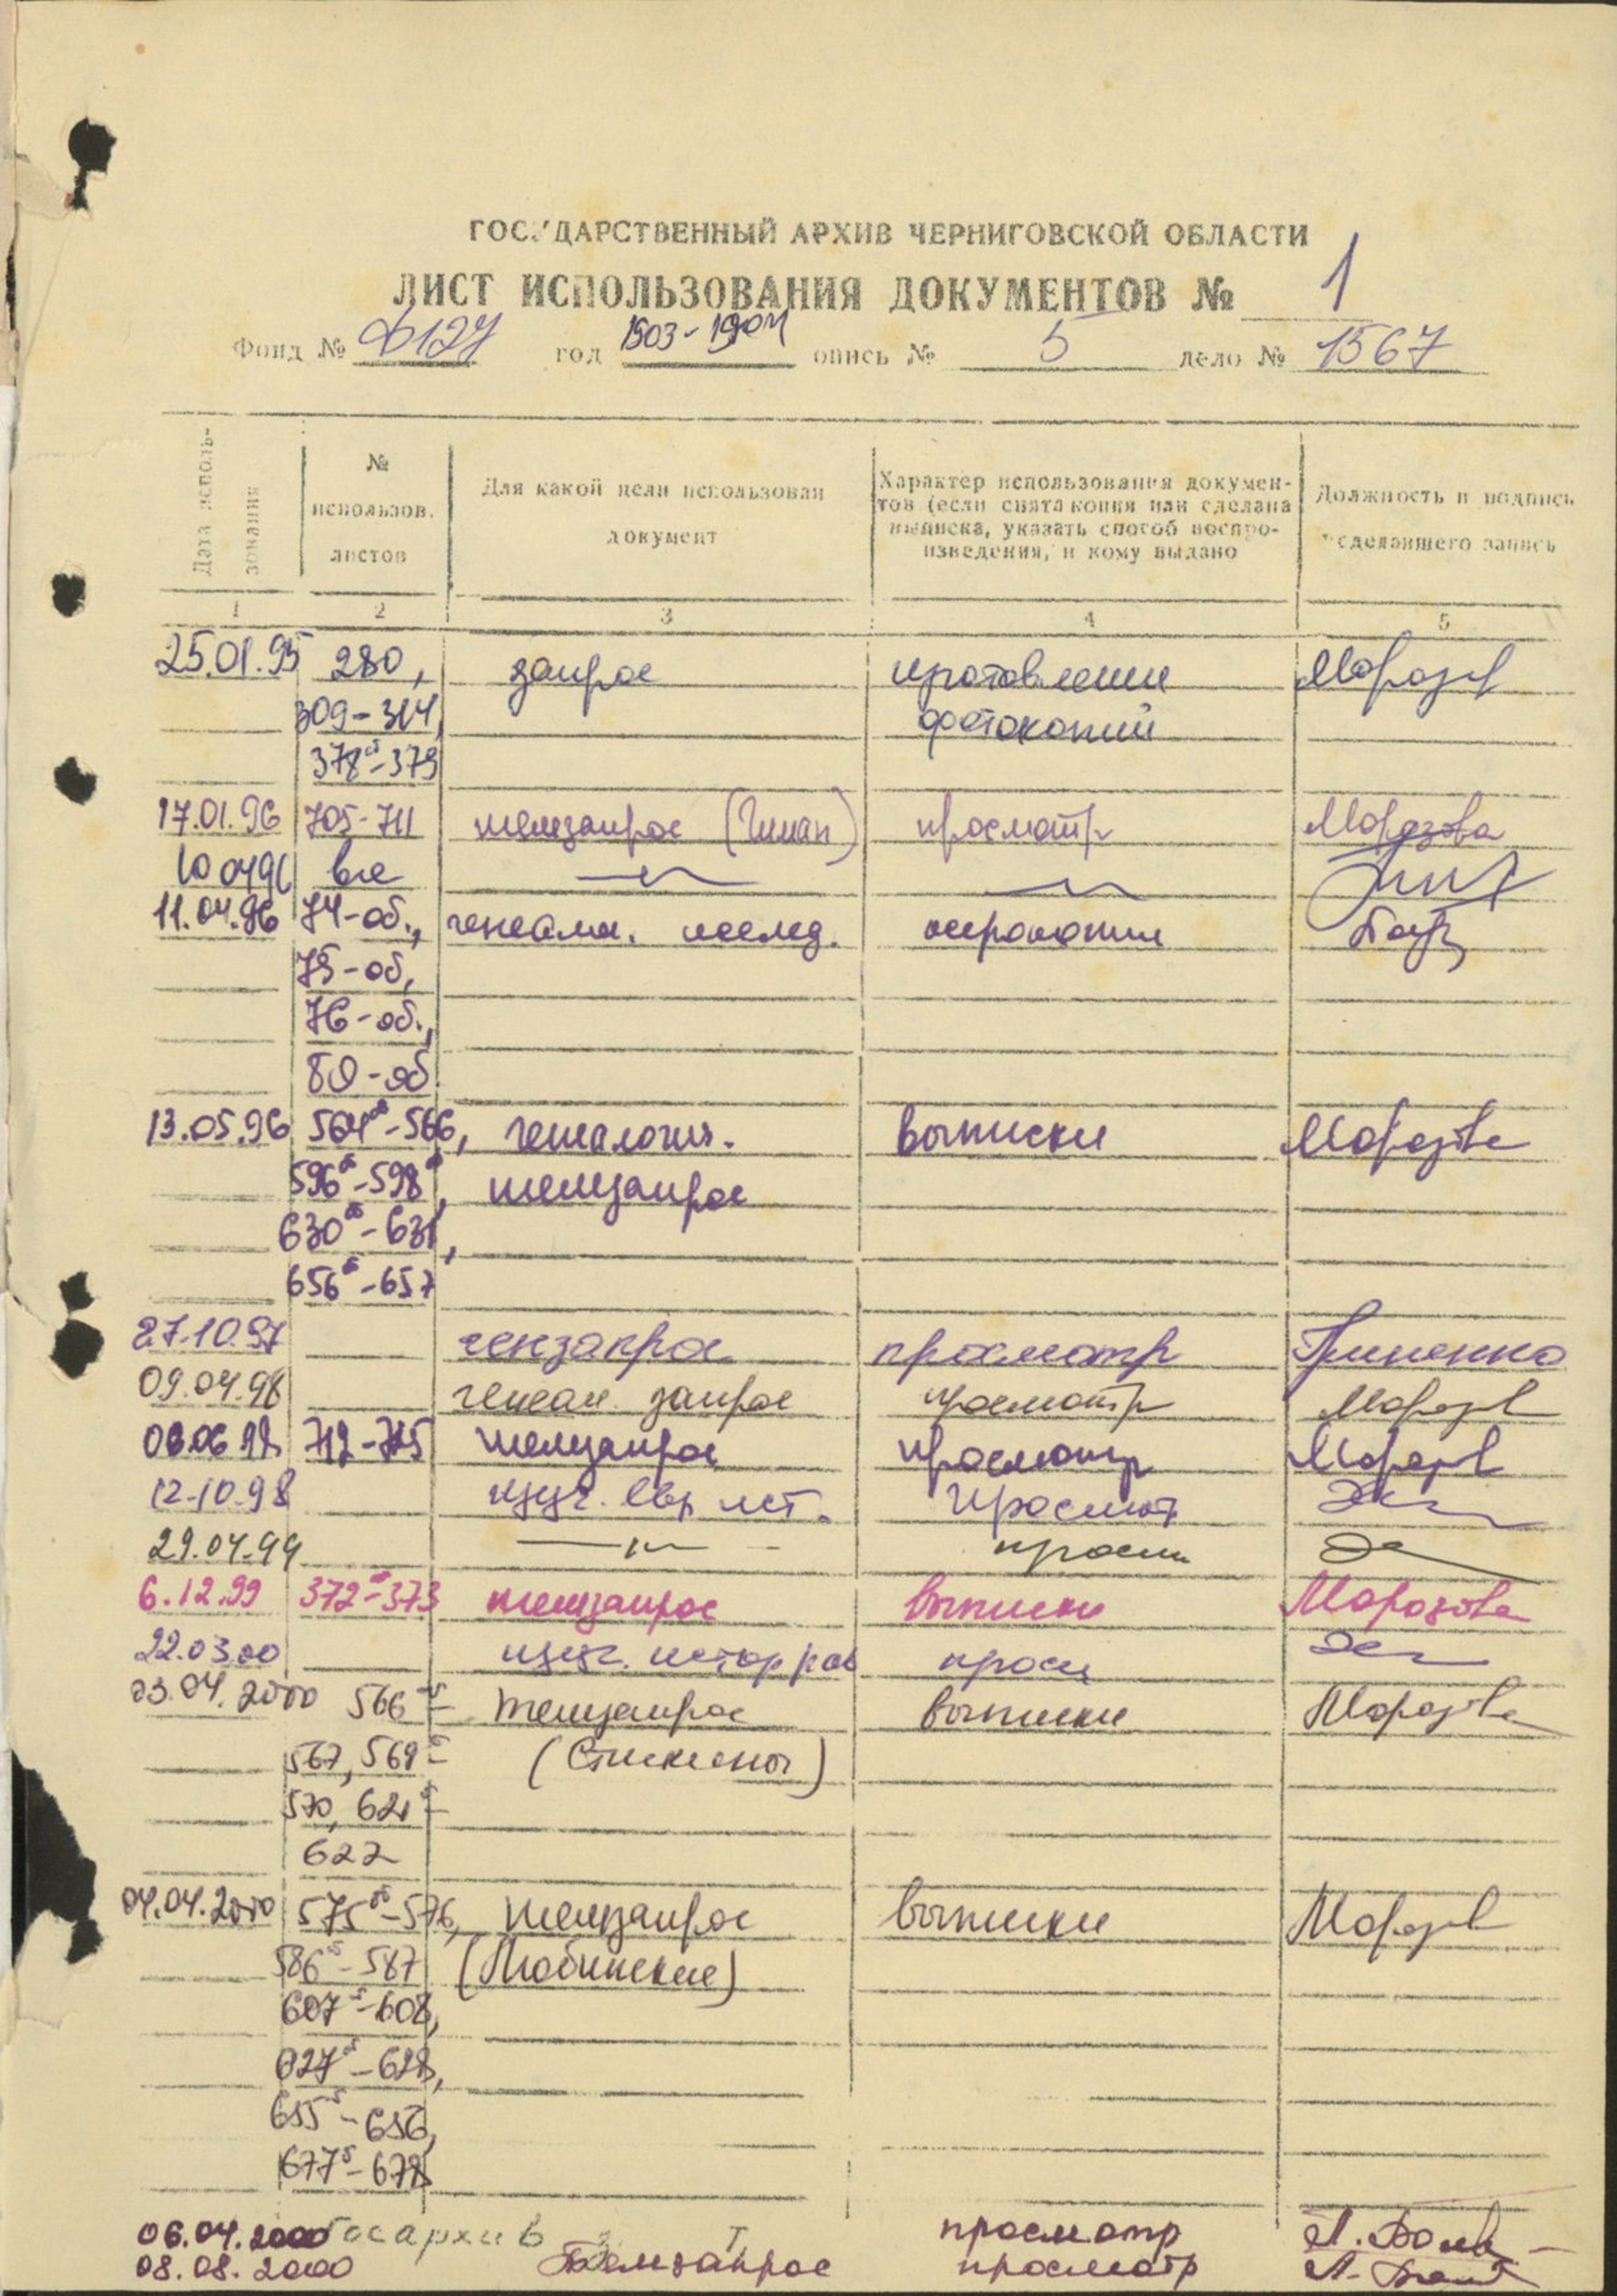 ГОСУДАРСТВЕННЫЙ АРХИВ ЧЕРНИГОВСКОЙ ОБЛАСТИ
ЛИСТ ИСПОЛЬЗОВАНИЯ ДОКУМЕНТОВ № 1
Фонд № Ф127 год 1903-1904 опись № 5 дело № 1567
Дата исполь-зования
№ использов. листов
Для какой цели использован документ
Характер использования докумен-
тов (если снята копия или сделана
выписка, указать способ воспро-
изведения, и кому выдано
Должность и подпись
сделавшего запись
1 2 3 4 5
25.01.95 280, запрос изготовление Морозов
309-314, фотокопий
378об-379
17.01.96 705-711 темзапрос просмотр Морозова
10 04 96 все —"— —"—
11.04.96 74-об., генеалог. исслед. ксерокопии
75-об,
76-об.,
80-об.
13.05.96 564об-566, генеалогич. выписки Морозова
596об-598об, темзапрос
630об-631,
656об-657
27.10.97 гензапрос просмотр Гриненко
09.04.98 генеал. запрос просмотр Морозов
712-715 темзапрос просмотр Морозов
12.10.98 изуч. евр. ист. просмот
29.04.99 —"— просм
6.12.99 372об-373 темзапрос выписки Морозова
22.03.00 изуч. истор просм
03.04.2000 566об- темзапрос выписки Морозова
567, 569об-
570, 621об-
622
04.04.2000 575об-576, темзапрос выписки Морозов
586об-587 (Любинские)
607об-608,
627об-628,
655об-656,
677об-678
06.04.2000 Госархив просмотр
08.08.2000 Темзапрос просмотр